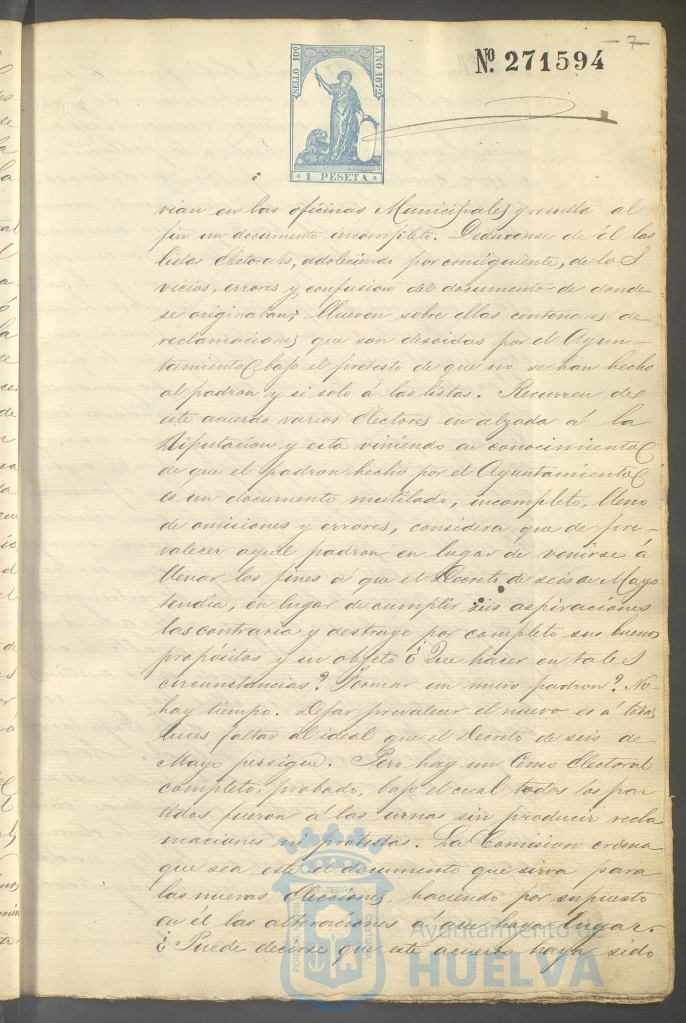 7
Nº 271594
SELLO 10º AÑO 1872
1 PESETA
vian en las oficinas Municipales y resulta al
fin un documento incompleto. Dedurense de él las
listas electorales, adoleciendo por consiguiente, de los
vicios, errores y confusion del documento de donde
se originaban; llueven sobre ellas centenares de
reclamaciones que son desoidas por el Ayun-
tamiento bajo el pretesto de que no se han hecho
al padron y si solo á las listas. Recurren de
este acuerdo varios electores en alzada á la
Diputacion y esta viniendo en conocimiento
de que el padron hecho por el Ayuntamiento
es un documento mutilado, incompleto, lleno
de omisiones y errores, considera que de pre-
valecer aquel padron en lugar de venirse á
llenar los fines á que el Decreto de seis de Mayo
tendia, en lugar de cumplir sus aspiraciones
las contraria y destruye por completo sus buenos
propósitos y su objeto ¿ Que hacer en tales
circunstancias? Formar un nuevo padron? No
hay tiempo. Dejar prevalecer el nuevo es á todas
luces faltar al ideal que el Decreto de seis de
Mayo persigue. Pero hay un Censo electoral
completo, probado, bajo el cual todos los par
tidos fueron á las urnas sin producir recla
maciones ni protestas. La Comision
que sea este el documento que sirva para
las nuevas elecciones, haciendo por supuesto
en el las alteraciones á que haya lugar.
¿ Puede decirse que este acuerdo haya sido
Ayuntamiento de
HUELVA